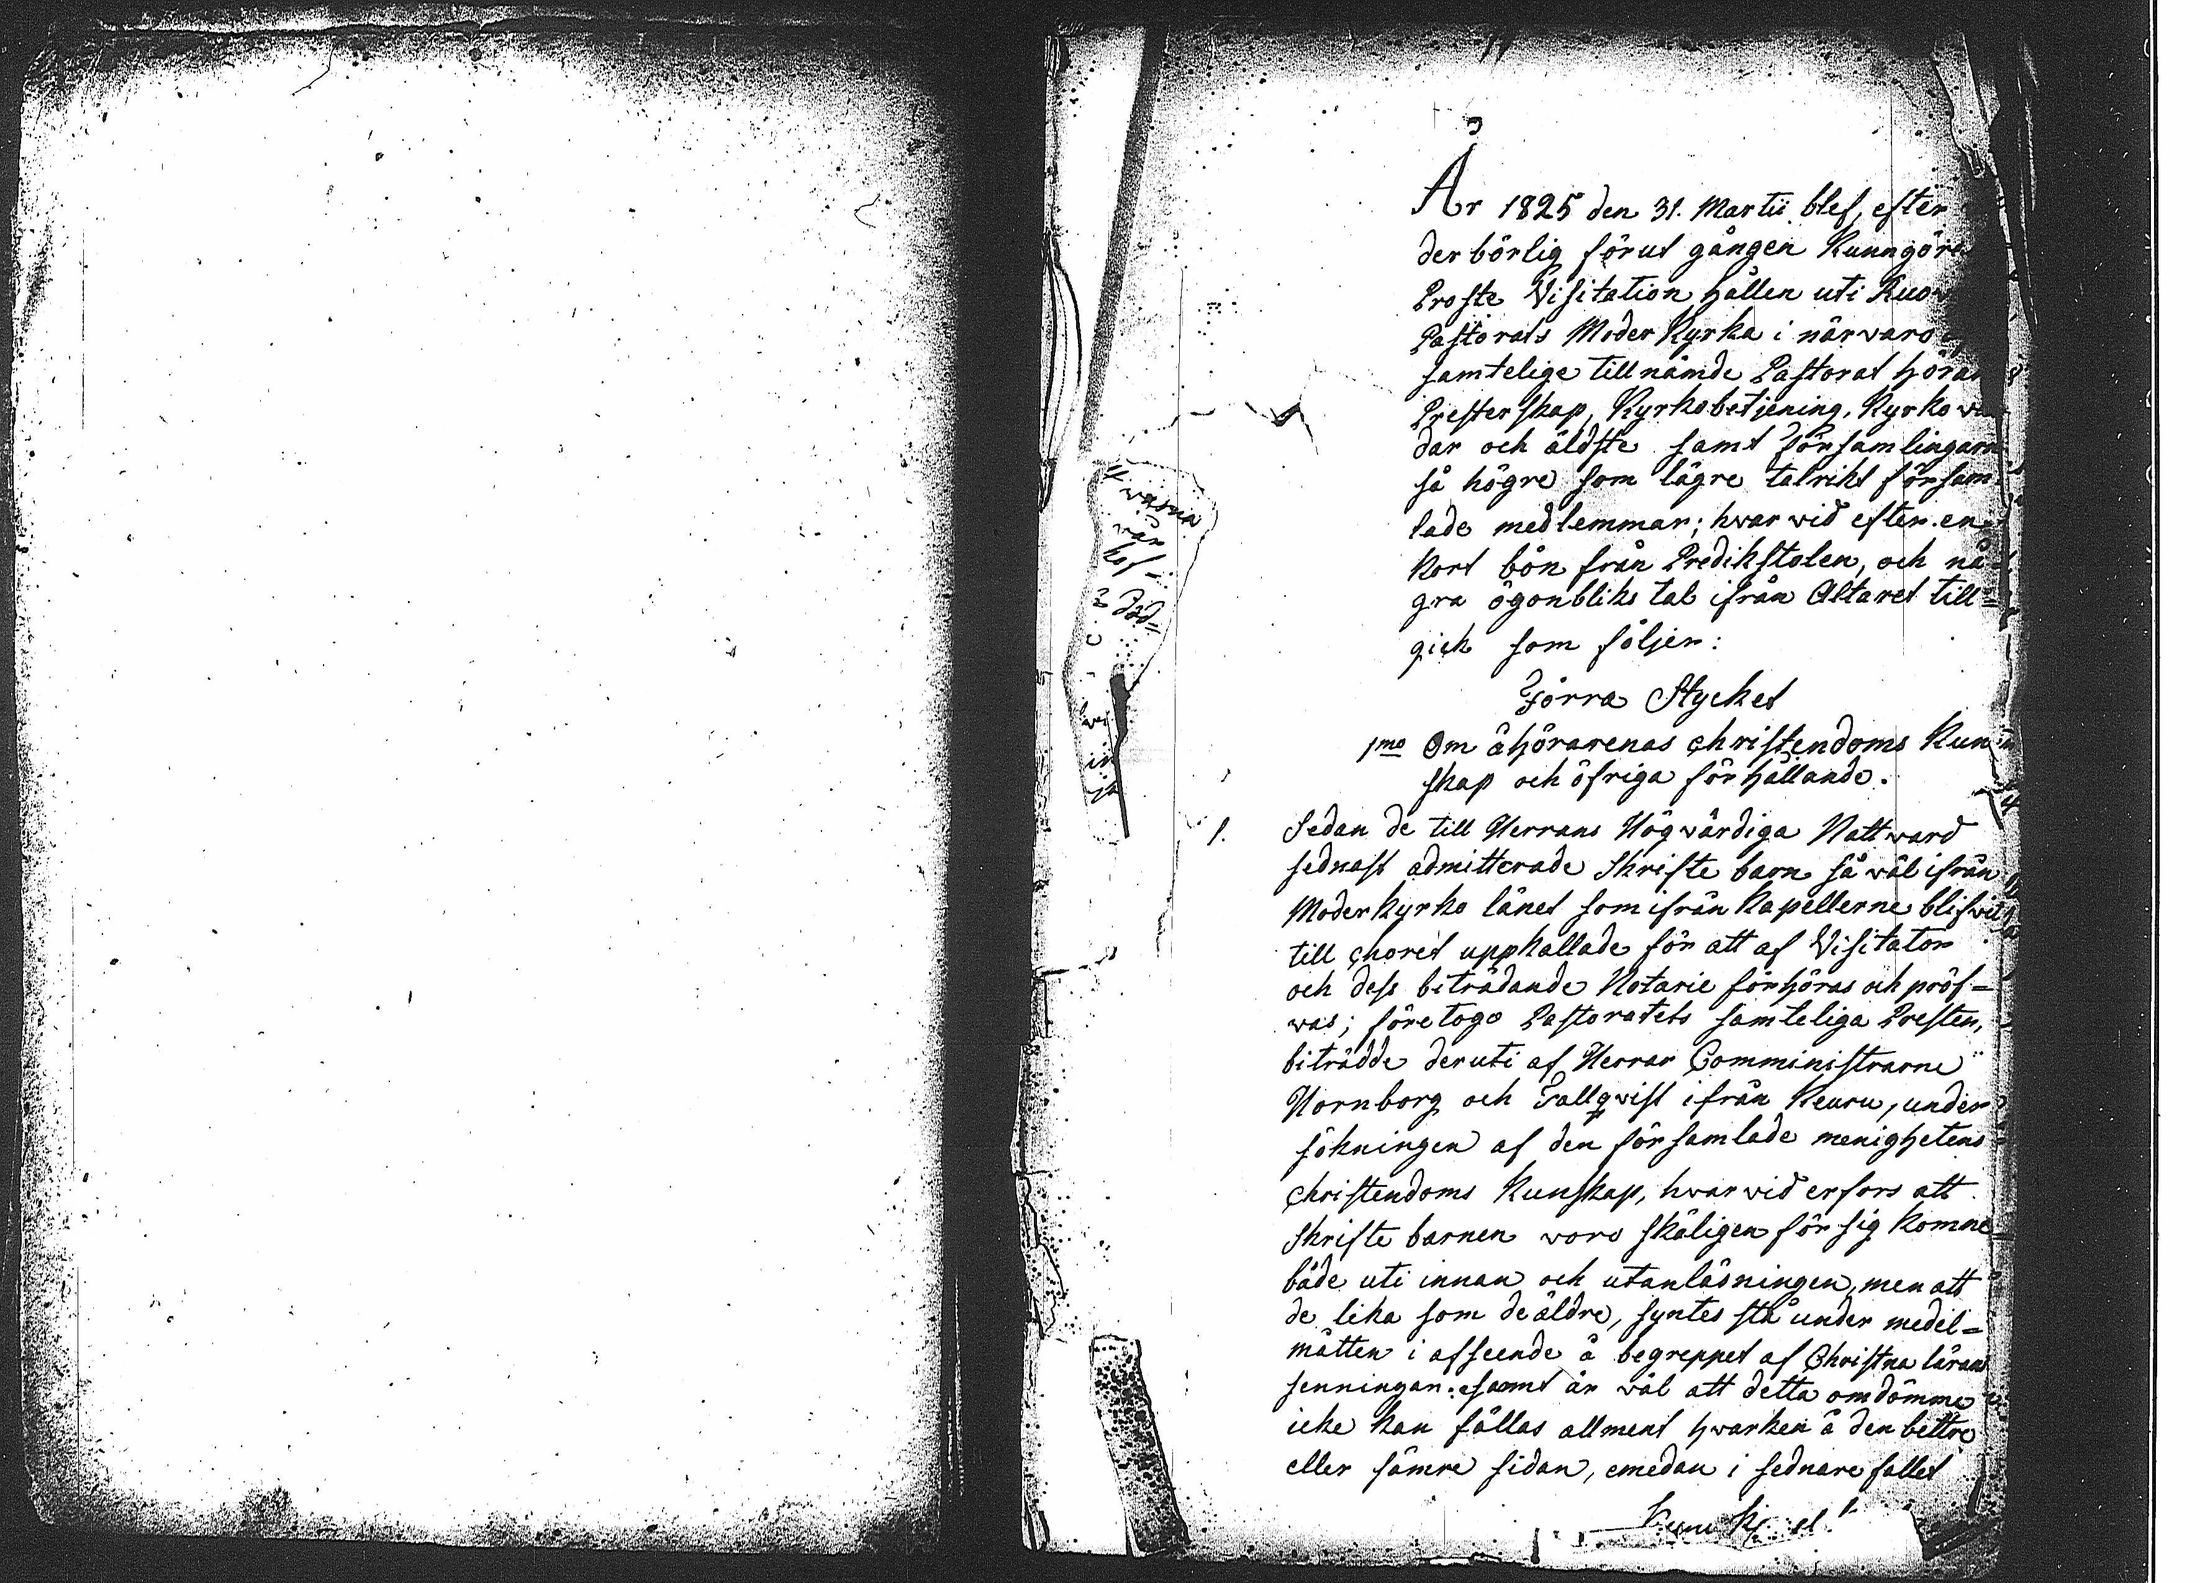 År 1825 den 31. Martii blef, efter
derbörlig förut gången Kunngöre
Proste Visitation hållen uti Ruo
Pastorats Moder Kyrka i närvaro
samtelige till nämde Pastorat höran
Presterskap, Kyrkobetjening, Kyrko vär
dar och äldste samt Församlingarn
så högre som lägre talrikt försam
lade medlemmar; hvarvid efter en
kort bön från Predikstolen, och nå=
gra ögonbliks tal ifrån Altaret till=
gick som följer:
Förra Stycket
1mo Om åhörarenas christendoms Kun
skap och öfriga förhållande.
1. Sedan de till Herrans Högvärdiga Nattvard
sednast admitterade Skrifte barn så väl ifrån
Moderkyrko länet som ifrån Kapellerne blifvit
till choret uppkallade för att af Visitator
och dess biträdande Notarie förhöras och pröf=
vas; företogo Pastoratets samteliga Prester,
biträdde deruti af Herrar Comministrarne
Hornborg och Fallqvist ifrån Keuru, under
sökningen af den församlade menighetens
christendoms Kunskap, hvarvid erfors att
Skrifte barnen voro skäligen försigkomne
både uti innan och utanläsningen, men att
de lika som de äldre, syntes stå under medel=
måtten i afseende å begreppet af Christna lärans
senningar: samt är väl att detta omdömme
icke kan fällas allment hvarken å den bettre
eller sämre sidan, emedan i sednare fallet
vasna
vår
hof-
död=